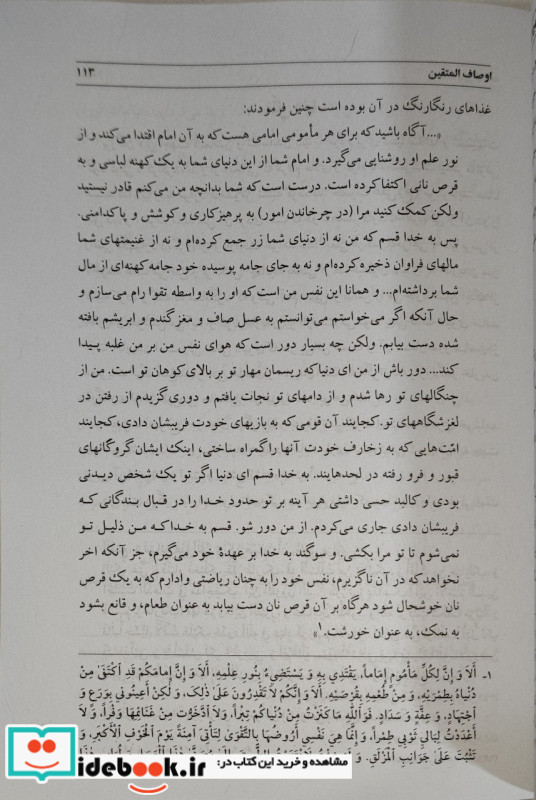 اوصاف المتقین ۱۱۳
غذاهای رنگارنگ در آن بوده است چنین فرمودند:
«...آگاه باشید که برای هر مأمومی امامی هست که به آن امام اقتدا می‌کند و از
نور علم او روشنایی می‌گیرد. و امام شما از این دنیای شما به یک کهنه لباسی و به
قرص نانی اکتفا کرده است. درست است که شما بدانچه من می‌کنم قادر نیستید
ولکن کمک کنید مرا (در چرخاندن امور) به پرهیزکاری و کوشش و پاکدامنی.
پس به خدا قسم که من نه از دنیای شما زر جمع کرده‌ام و نه از غنیمتهای شما
مالهای فراوان ذخیره کرده‌ام و نه به جای جامه پوسیده خود جامه کهنه‌ای از مال
شما برداشته‌ام... و همانا این نفس من است که او را به واسطه تقوا رام می‌سازم و
حال آنکه اگر می‌خواستم می‌توانستم به عسل صاف و مغز گندم و ابریشم بافته
شده دست بیابم. ولکن چه بسیار دور است که هوای نفس من بر من غلبه پیدا
کند... دور باش از من ای دنیا که ریسمان مهار تو بر بالای کوهان تو است. من از
چنگالهای تو رها شدم و از دامهای تو نجات یافتم و دوری گزیدم از رفتن در
لغزشگاههای تو. کجایند آن قومی که به بازیهای خودت فریبشان دادی، کجایند
امّت‌هایی که به زخارف خودت آنها را گمراه ساختی، اینک ایشان گروگانهای
قبور و فرو رفته در لحدهایند. به خدا قسم ای دنیا اگر تو یک شخص دیدنی
بودی و کالبد حسی داشتی هر آینه بر تو حدود خدا را در قبال بندگانی که
فریبشان دادی جاری می‌کردم. از من دور شو. قسم به خدا که من ذلیل تو
نمی‌شوم تا تو مرا بکشی. و سوگند به خدا بر عهدهٔ خود می‌گیرم، جز آنکه اخر
نخواهد که در آن ناگزیرم، نفس خود را به چنان ریاضتی وادارم که به یک قرص
نان خوشحال شود هرگاه بر آن قرص نان دست بیابد به عنوان طعام، و قانع بشود
به نمک، به عنوان خورشت.۱»
۱- أَلَا وَ إِنَّ لِكُلِّ مَأْمُومٍ إِمَاماً، يَقْتَدِي بِهِ وَ يَسْتَضِيءُ بِنُورِ عِلْمِهِ، أَلَا وَ إِنَّ إِمَامَكُمْ قَدِ اكْتَفَىٰ مِنْ
دُنْيَاهُ بِطِمْرَيْهِ، وَ مِنْ طُعْمِهِ بِقُرْصَيْهِ. أَلَا وَ إِنَّكُمْ لَا تَقْدِرُونَ عَلَىٰ ذٰلِكَ، وَ لٰكِنْ أَعِينُونِي بِوَرَعٍ وَ
اجْتِهَادٍ، وَ عِفَّةٍ وَ سَدَادٍ. فَوَاللَّهِ مَا كَنَزْتُ مِنْ دُنْيَاكُمْ تِبْراً، وَلَا ادَّخَرْتُ مِنْ غَنَائِمِهَا وَفْراً، وَ لَا
أَعْدَدْتُ لِبَالِي ثَوْبِي طِمْراً، وَ إِنَّمَا هِيَ نَفْسِي أَرُوضُهَا بِالتَّقْوَىٰ لِتَأْتِيَ آمِنَةً يَوْمَ الْخَوْفِ الْأَكْبَرِ، وَ
تَثْبُتَ عَلَىٰ جَوَانِبِ الْمَزْلَقِ.
iidebook.ir
مشاهده و خرید این کتاب در: